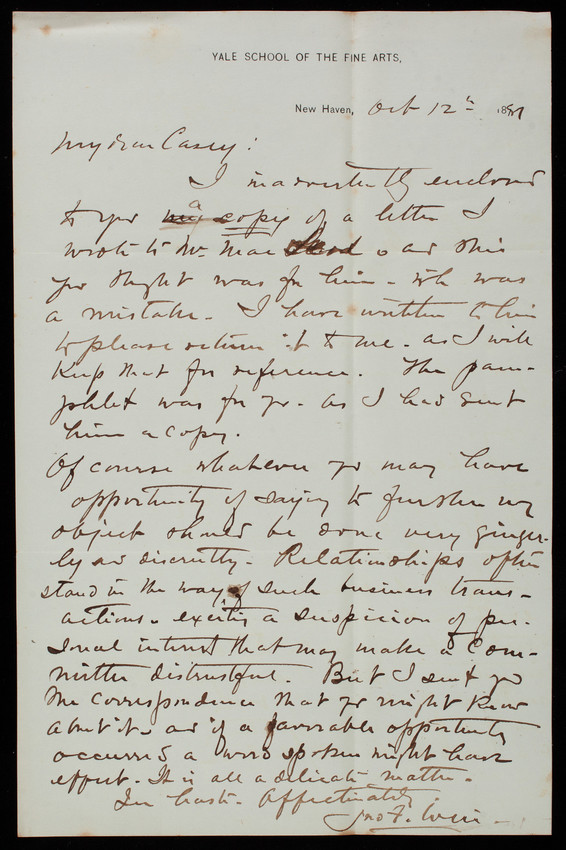 YALE SCHOOL OF THE FINE ARTS,
New Haven, Oct 12th 1887
My dear Casey:
I inadvertently enclosed
to you a copy of a letter I
wrote to Mr. Mac and this
you thought was for him - wh was
a mistake. I have written to him
to please return it to me - as I will
keep that for reference. The pam-
phlet was for yr - as I had sent
him a copy.
Of course whatever yr may have
opportunity of saying to further my
object should be done very ginger-
ly and discreetly. Relationships often
stand in the way of such business trans-
actions - exciting a suspicion of per-
sonal interest that may make a Com-
mittee distrustful. But I sent yr
the correspondence that yr might know
about it - and if a favorable opportunity
occurred a word spoken might have
effect. It is all a delicate matter.
In haste. Affectionately.
Jno F. Weir -